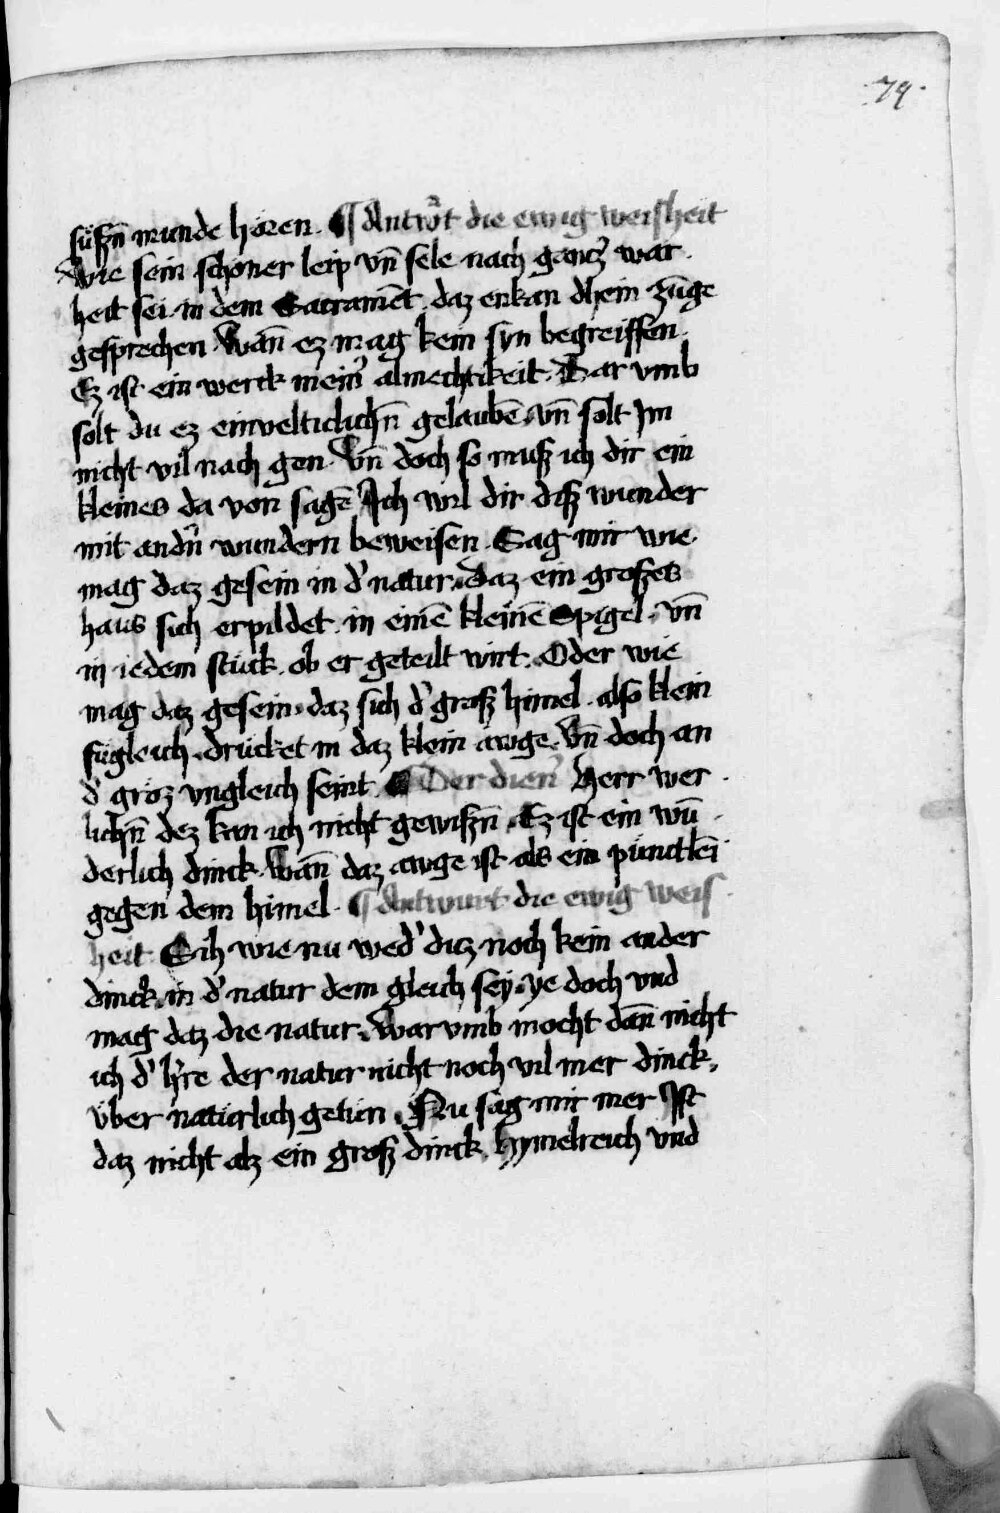 79.
süßn̄ munde hören. ¶ Antw̉t die ewig weisheit
Wie sein schöner leip vn̄ sele nach gancz̾ war
heit sei in dem Sacramēt. daz enkan dhein zūge
gesprechen. Wān ez mag kein syn begreiffen.
Ez ist ein werck mein̾ almechtikeit. Dar vmb
solt du ez einvelticlichn̄ gelaubē. vn̄ solt Im
nicht vil nach gen. Vn̄ doch so muß ich dir ein
kleines da von sagē Ich wil dir diß wunder
mit and̾n wundern beweisen. Sag mir wie
mag daz gesein in d̾ natur. daz ein großes
haus sich erpildet. in einē kleinē Spigel. vn̄
in iedem stück. ob er geteilt wirt. Oder wie
mag daz gesein. daz sich d̾ groß himel. also klein
fügleich. drücket in daz klein awge. Vn̄ doch an
d̾ gröz vngleich seint. ¶ Der dien̾ Herr wer
lichn̄ dez kan ich nicht gewißn̄. Ez ist ein wū
derlich dinck. Wān daz awge ist als ein pünctlēi
gegen dem himel. ¶ Antwurt die ewig weis
heit Sih wie nu wed̾ diz noch kein ander
dinck. in d̾ natur dem gleich sey. ye doch vnd
mag daz die natur. Warvmb mocht dān nicht
ich d̾ h̾re der natur nicht noch vil mer dinck.
über natürlich getün. Nu sag mir mer Ist
daz nicht alz ein groß dinck. hymelreich vnd